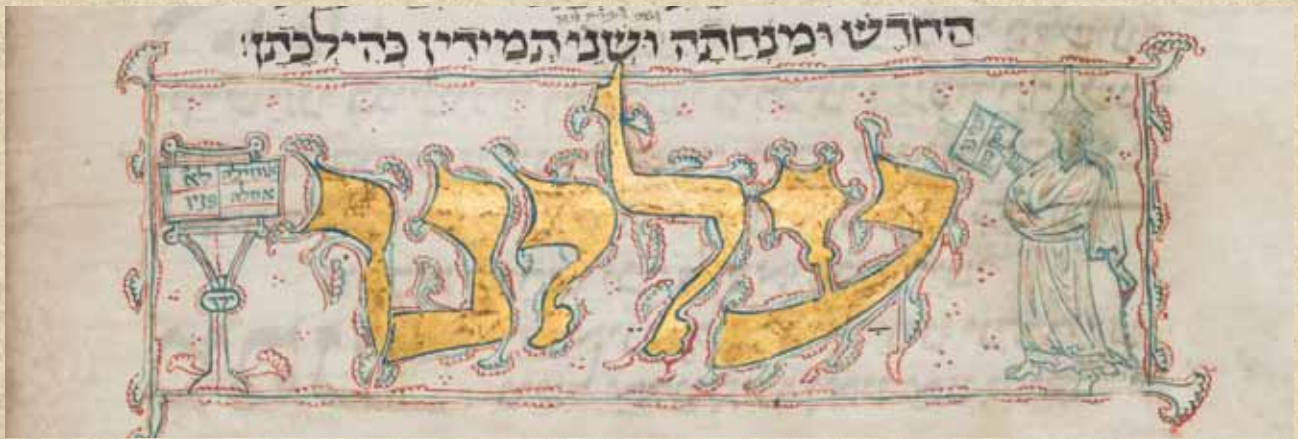 הַחֹדֶשׁ וּמִנְחָתָהּ וּשְׁנֵי תְמִידִין כְּהִילְכָתָן:
עלינו
אוחילה לא
אחלה פניו